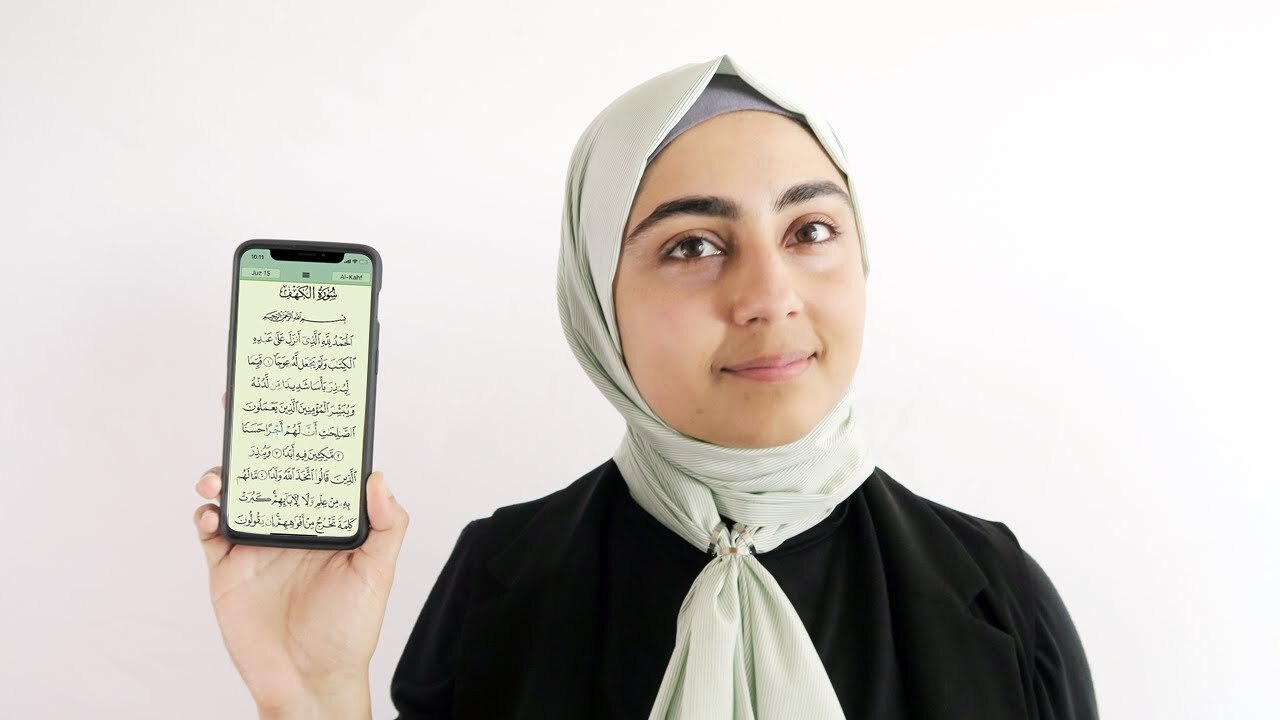 10:11
Juz 15 Al-Kahf
سُورَةُ الكَهْفِ
بِسْمِ اللَّهِ الرَّحْمَٰنِ الرَّحِيمِ
ٱلْحَمْدُ لِلَّهِ ٱلَّذِىٓ أَنزَلَ عَلَىٰ عَبْدِهِ
ٱلْكِتَٰبَ وَلَمْ يَجْعَل لَّهُۥ عِوَجَا ۜ ١ قَيِّمًا
لِّيُنذِرَ بَأْسًا شَدِيدًا مِّن لَّدُنْهُ
وَيُبَشِّرَ ٱلْمُؤْمِنِينَ ٱلَّذِينَ يَعْمَلُونَ
ٱلصَّٰلِحَٰتِ أَنَّ لَهُمْ أَجْرًا حَسَنًا
٢ مَّٰكِثِينَ فِيهِ أَبَدًا ٣ وَيُنذِرَ
ٱلَّذِينَ قَالُوا۟ ٱتَّخَذَ ٱللَّهُ وَلَدًا ٤ مَّا لَهُم
بِهِۦ مِنْ عِلْمٍ وَلَا لِءَابَآئِهِمْ كَبُرَتْ
كَلِمَةً تَخْرُجُ مِنْ أَفْوَٰهِهِمْ إِن يَقُولُونَ